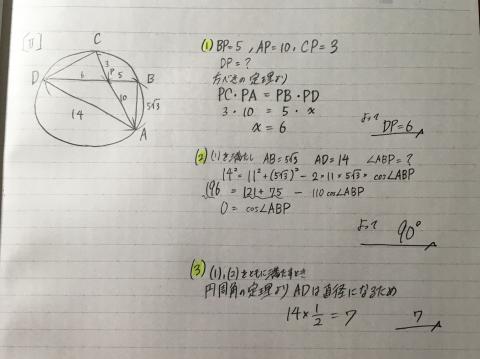 [II]
C
D
B
A
P
3
6
5
10
5√3
14
(1) BP=5, AP=10, CP=3
DP=?
方べきの定理より
PC・PA = PB・PD
3・10 = 5・x
x = 6
よって DP=6
(2) (1)を満たし AB=5√3 AD=14 ∠ABP=?
14²=11²+(5√3)²-2×11×5√3×cos∠ABP
196 = 121+75 - 110cos∠ABP
0 = cos∠ABP
よって 90°
(3) (1),(2)をともに満たすとき
円周角の定理より ADは直径になるため
14×1/2=7
7